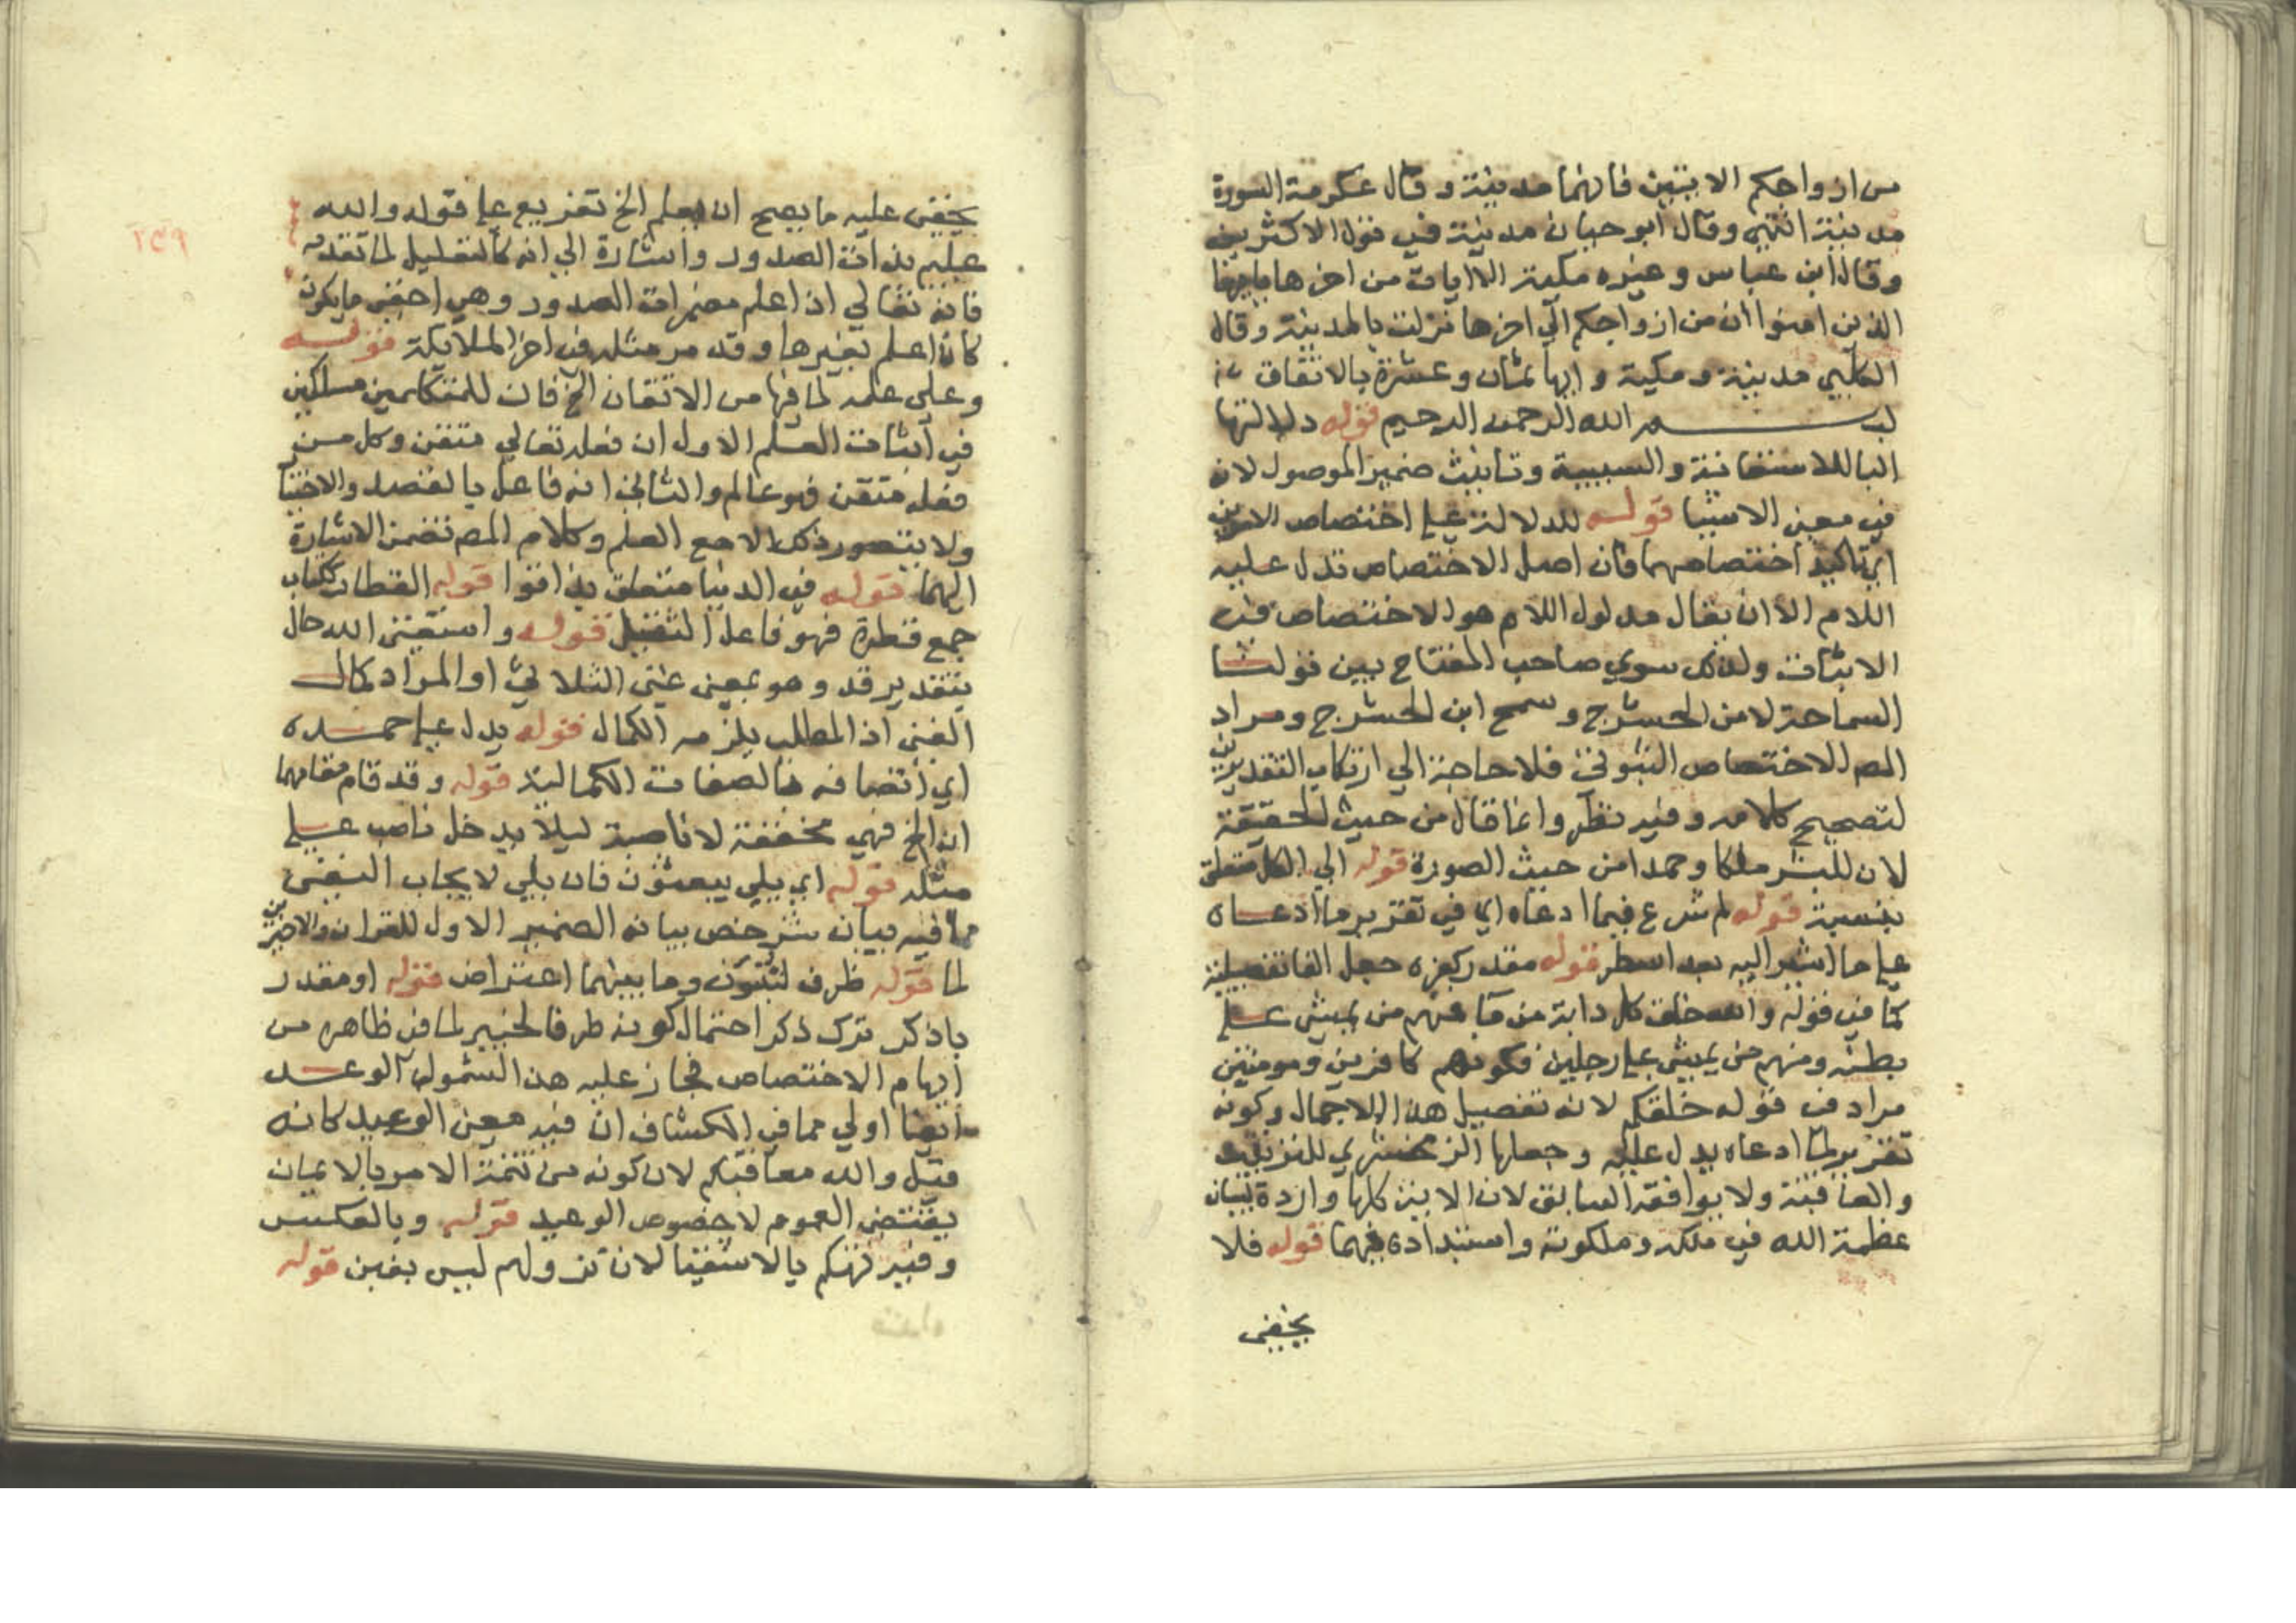 من ازواجكم الايتين فانهما مدينة وقال عكرمة السورة
مدينة انتهي وقال ابو حيان مدينة في قول الاكثرين
وقال ابن عباس وغيره مكية الا ايات من اخرها ياايها
الذين امنوا ان من ازواجكم الي اخرها نزلت بالمدينة وقال
الكلبي مدينة ومكية وايها ثمان وعشرة بالاتفاق
بسم الله الرحمن الرحيم قوله دلالتها
البا للاستعانة والسببية وتانيث ضمير الموصول لان
في معني الاشيا قوله للدلالة علي اختصاص الامرين
اي تاكيد اختصاصهما فان اصل الاختصاص تدل عليه
اللام الا ان يقال مدلول اللام هو الاختصاص في
الاثبات ولذلك سوي صاحب المفتاح بين قولنا
السماحة لامن الحشرج وسمح ابن الحشرج ومراد
المص الاختصاص الثبوتي فلا حاجة الي ارتكاب التقديرين
لتصحيح كلامه وفيه نظر وانما قال من حيث الحقيقة
لان للبشر ملكا وحمدا من حيث الصورة قوله الي الكل متعلق
بنسبة قوله ثم شرع فيما ادعاه اي في تقرير ما ادعاه
علي ما اشير اليه بعد اسطر قوله مقدر كفره جعل الفا تفصيلية
كما في قوله والله خلق كل دابة من ما فمنهم من يمشي علي
بطنه ومنهم من يمشي علي رجلين فكونهم كافرين ومومنين
مراد في قوله خلقكم لانه تفصيل هذا الاجمال وكونه
تقرير لما ادعاه يدل عليه وجعلها الزمخشري للترتيب
والعاقبة ولا يوافقه السابق لان الاية كلها واردة لبيان
عظمة الله في ملكه وملكوته واستبداده فيهما قوله فلا
يخفي
٢٥٩
يخفي عليه ما يصح ان يعلم الخ تفريع علي قوله والله
عليم بذات الصدور واشارة الي انه كالتعليل لما تقدمه
فانه تعالي اذا علم مضمرات الصدور وهي اخفي ما يكون
كان اعلم بغيرها وقد مر مثله في اخر الملايكة قوله
وعلي علمه لما فيها من الاتقان الخ فان للمتكلمين مسلكين
في اثبات العلم الاول ان فعله تعالي متقن وكل من
فعله متقن فهو عالم والثاني انه فاعل بالقصد والاختيا
ولا يتصور ذلك الا مع العلم وكلام المص تضمن الاشارة
اليهما قوله في الدنيا متعلق بذاقوا قوله القطار ككتاب
جمع قطرة فهو فاعل الثقيل قوله واستغني الله حال
بتقدير قد وهو بمعني غني الثلاثي او المراد كمال
الغني اذ الطلب يلزمه الكمال قوله يدل علي حمده
اي اتصافه بالصفات الكمالية قوله وقد قام مقامهما
ان الخ فهي مخففة لا ناصبة ليلا يدخل ناصب علي
مثله قوله اي بلي يبعثون فان بلي لايجاب النفي
مما فيه بيان شرحه بيانه الضمير الاول للقران والاخيرين
لما قوله ظرف لتنبؤن وما بينهما اعتراض قوله او مقدر
باذكر ترك ذكر احتمال كونه ظرفا لخبير لما في ظاهره من
ايهام الاختصاص فجاز عليه هذا الشمول الوعد
ايضا اولي مما في الكشاف ان فيه معني الوعيد كانه
قيل والله معاقبكم لان كونه من تتمة الامر بالايمان
يقتضي العموم لا خصوص الوعيد قوله وبالعكس
وفيه تهكم بالاشقيا لان نزولهم ليس بغبن قوله